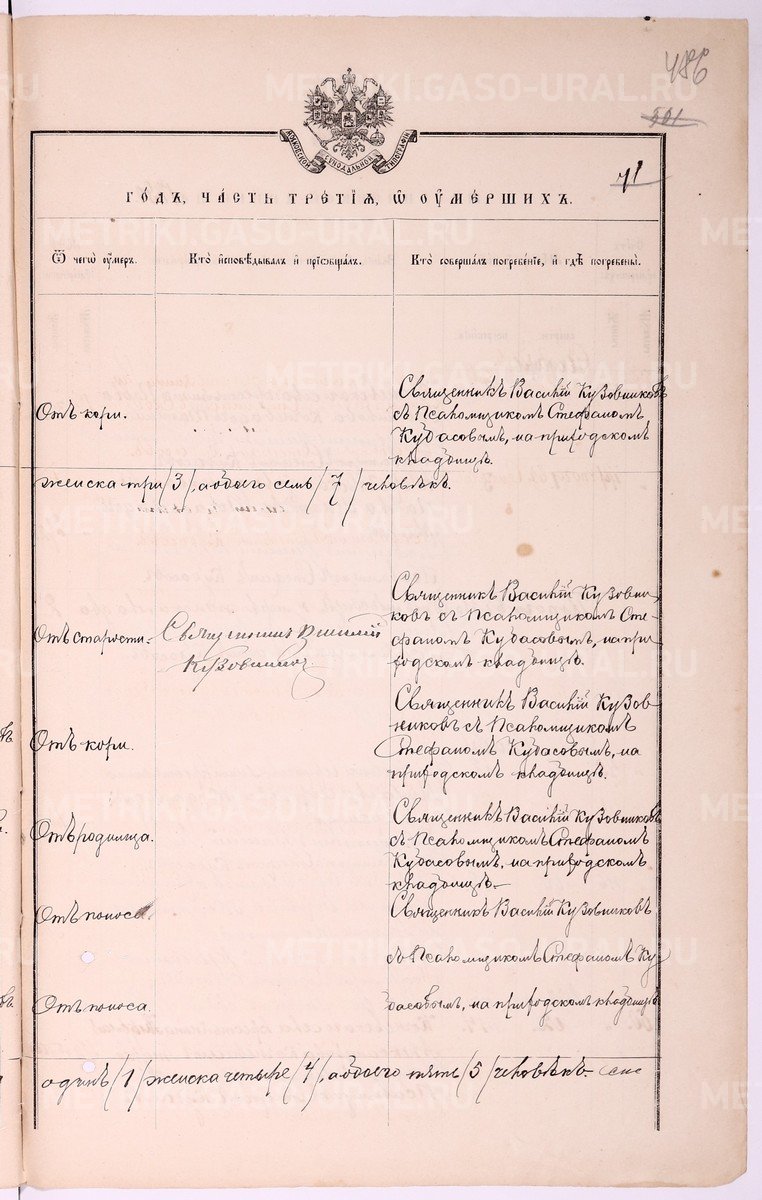 486
501
71
МОСКОВСКОЙ СѴНОДАЛЬНОЙ ТИПОГРАФІИ
ГОДЪ, ЧАСТЬ ТРЕТІЯ, Ѿ ОУМЕРШИХЪ.
Ѿ чегѡ оумеръ.
Кто исповѣдывалъ и пріѡбщалъ.
Кто совершалъ погребеніе, и гдѣ погребены.
Отъ кори.
Священникъ Василій Кузовниковъ
съ Псаломщикомъ Стефаномъ
Кудасовымъ, на приходскомъ
кладбищѣ.
женска три /3/, а обоего семь /7/ человѣкъ.
Отъ старости.
Священникъ Василій
Кузовников
Священникъ Василій Кузовни-
ковъ съ Псаломщикомъ Сте-
фаномъ Кудасовымъ, на при-
ходскомъ кладбищѣ.
Отъ кори.
Священникъ Василій Кузов-
никовъ съ Псаломщикомъ
Стефаномъ Кудасовымъ, на
приходскомъ кладбищѣ.
Отъ родимца.
Священникъ Василій Кузовниковъ
съ Псаломщикомъ Стефаномъ
Кудасовымъ, на приходскомъ
кладбищѣ.
Отъ поноса
Священникъ Василій Кузовниковъ
съ Псаломщикомъ Стефаномъ Ку
Отъ поноса.
дасовымъ, на приходскомъ кладбищѣ
одинъ /1/ женска четыре /4/, а обоего пять /5/ человѣкъ.
METRIKI.GASO-URAL.RU